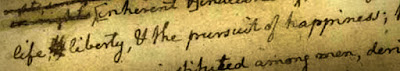 inherent
life, & liberty, & the pursuit of happiness;
among men, deri